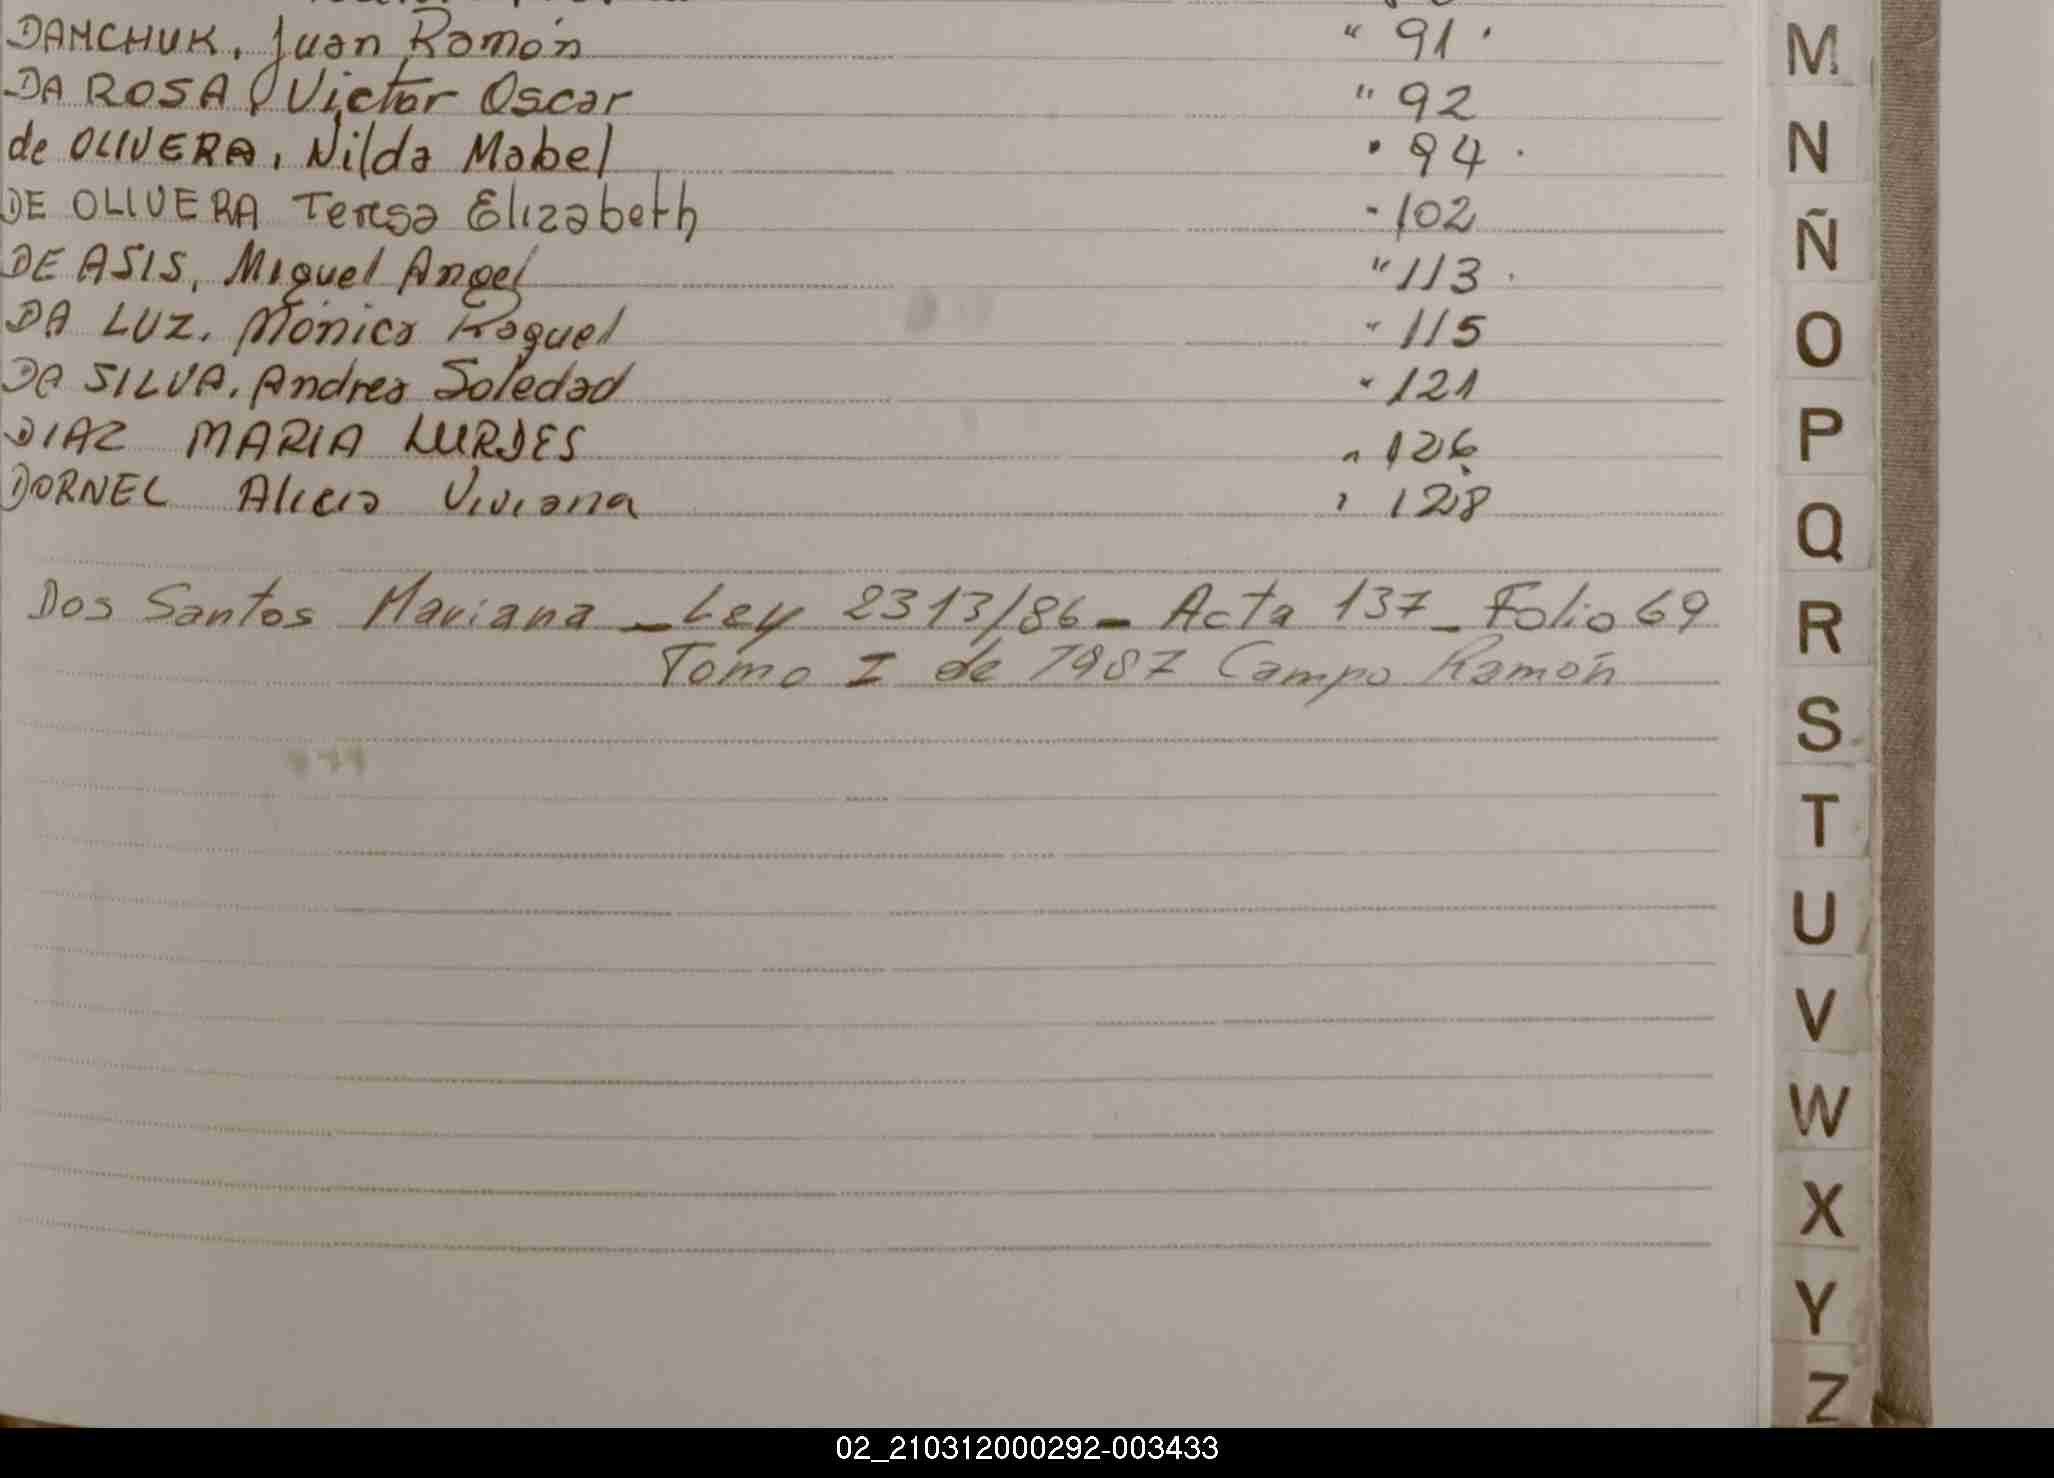 DAMCHUK, Juan Ramón " 91.
DA ROSA, Victor Oscar " 92
de OLIVERA, Nilda Mabel " 94.
DE OLIVERA Teresa Elizabeth - 102
DE ASIS, Miguel Angel " 113.
DA LUZ, Mónica Raquel " 115
DA SILVA, Andrea Soledad " 121
DIAZ MARIA LURDES " 126
DORNEL Alicia Viviana " 128
Dos Santos Mariana - Ley 2313/86 - Acta 137 - Folio 69
Tomo I de 1987 Campo Ramón
M
N
Ñ
O
P
Q
R
S
T
U
V
W
X
Y
Z
02_210312000292-003433